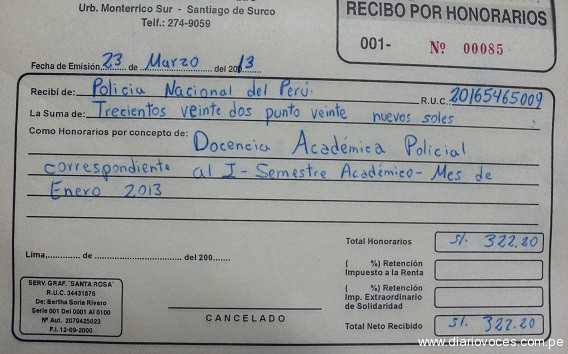 Urb. Monterrico Sur - Santiago de Surco
Telf.: 274-9059
RECIBO POR HONORARIOS
001- Nº 00085
Fecha de Emisión, 23 de Marzo del 2013
Recibí de: Policia Nacional del Perú. R.U.C. 20165465009
La Suma de: Trecientos veinte dos punto veinte nuevos soles
Como Honorarios por concepto de: Docencia Académica Policial
correspondiente al I-Semestre Académico- Mes de
Enero 2013
Total Honorarios S/. 322.20
( %) Retención
Impuesto a la Renta
Lima, de del 200
( %) Retención
Imp. Extraordinario
de Solidaridad
SERV. GRAF. "SANTA ROSA"
R.U.C. 34431876
De: Bertha Soria Rivero
Serie 001 Del 0001 Al 0100
Nº Aut. 2079425023
F.I. 12-09-2000
CANCELADO
Total Neto Recibido S/. 322.20
www.diariovoces.com.pe